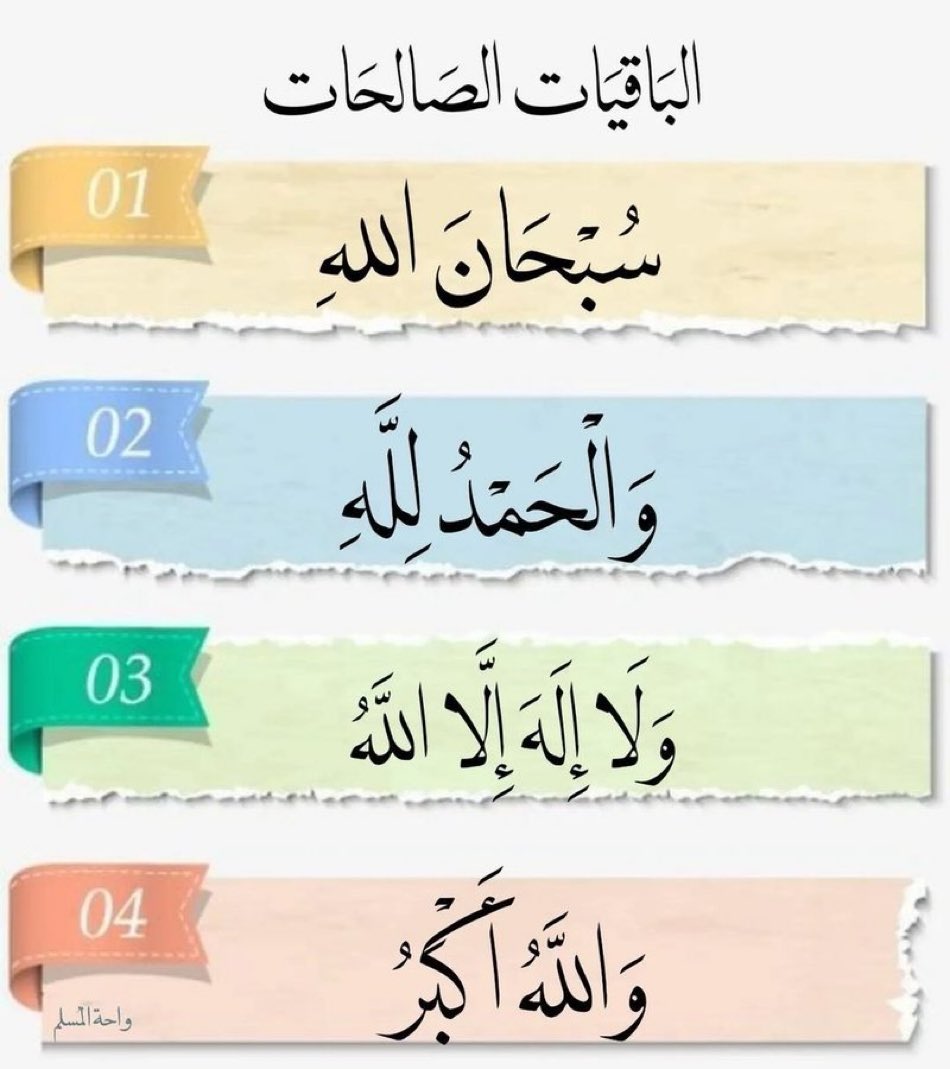 البَاقيَات الصَالحَات
01
سُبْحَانَ اللهِ
02
وَالْحَمْدُ لِلَّهِ
03
وَلَا إِلَهَ إِلَّا اللَّهُ
04
وَاللَّهُ أَكْبَرُ
واحة المسلم